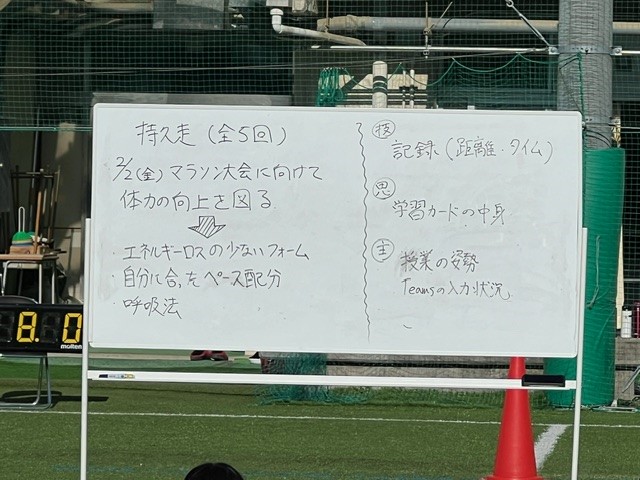 持久走（全5回）
2/2(金) マラソン大会に向けて
体力の向上を図る
・エネルギーロスの少ないフォーム
・自分に合ったペース配分
・呼吸法
技
記録（距離・タイム）
思
学習カードの中身
主
授業の姿勢
Teamsの入力状況
8.0
molten